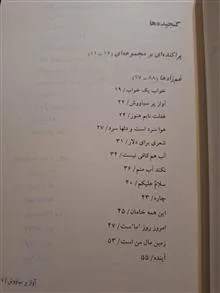 گنجیده‌ها
پراکنده‌ای بر مجموعه‌ای (۱۶ – ۱۱)
غم‌زادها (۸۸ – ۱۷)
خواب یک خواب/ ۱۹
آواز پر سیاووش/ ۲۲
غفلت نابم هنوز/ ۲۴
هوا سرد است و دلها سرد/ ۲۷
شعری برای دلار/ ۳۱
آب هم کافی نیست/ ۳۴
نکند آب منم/ ۳۶
سلامٌ علیکم/ ۴۰
چاره/ ۴۳
این همه خامان/ ۴۵
امروز روز "ما"ست/ ۴۷
زمین مال من است/ ۵۳
آینده/ ۵۵
آواز پر سیاووش/ ۹